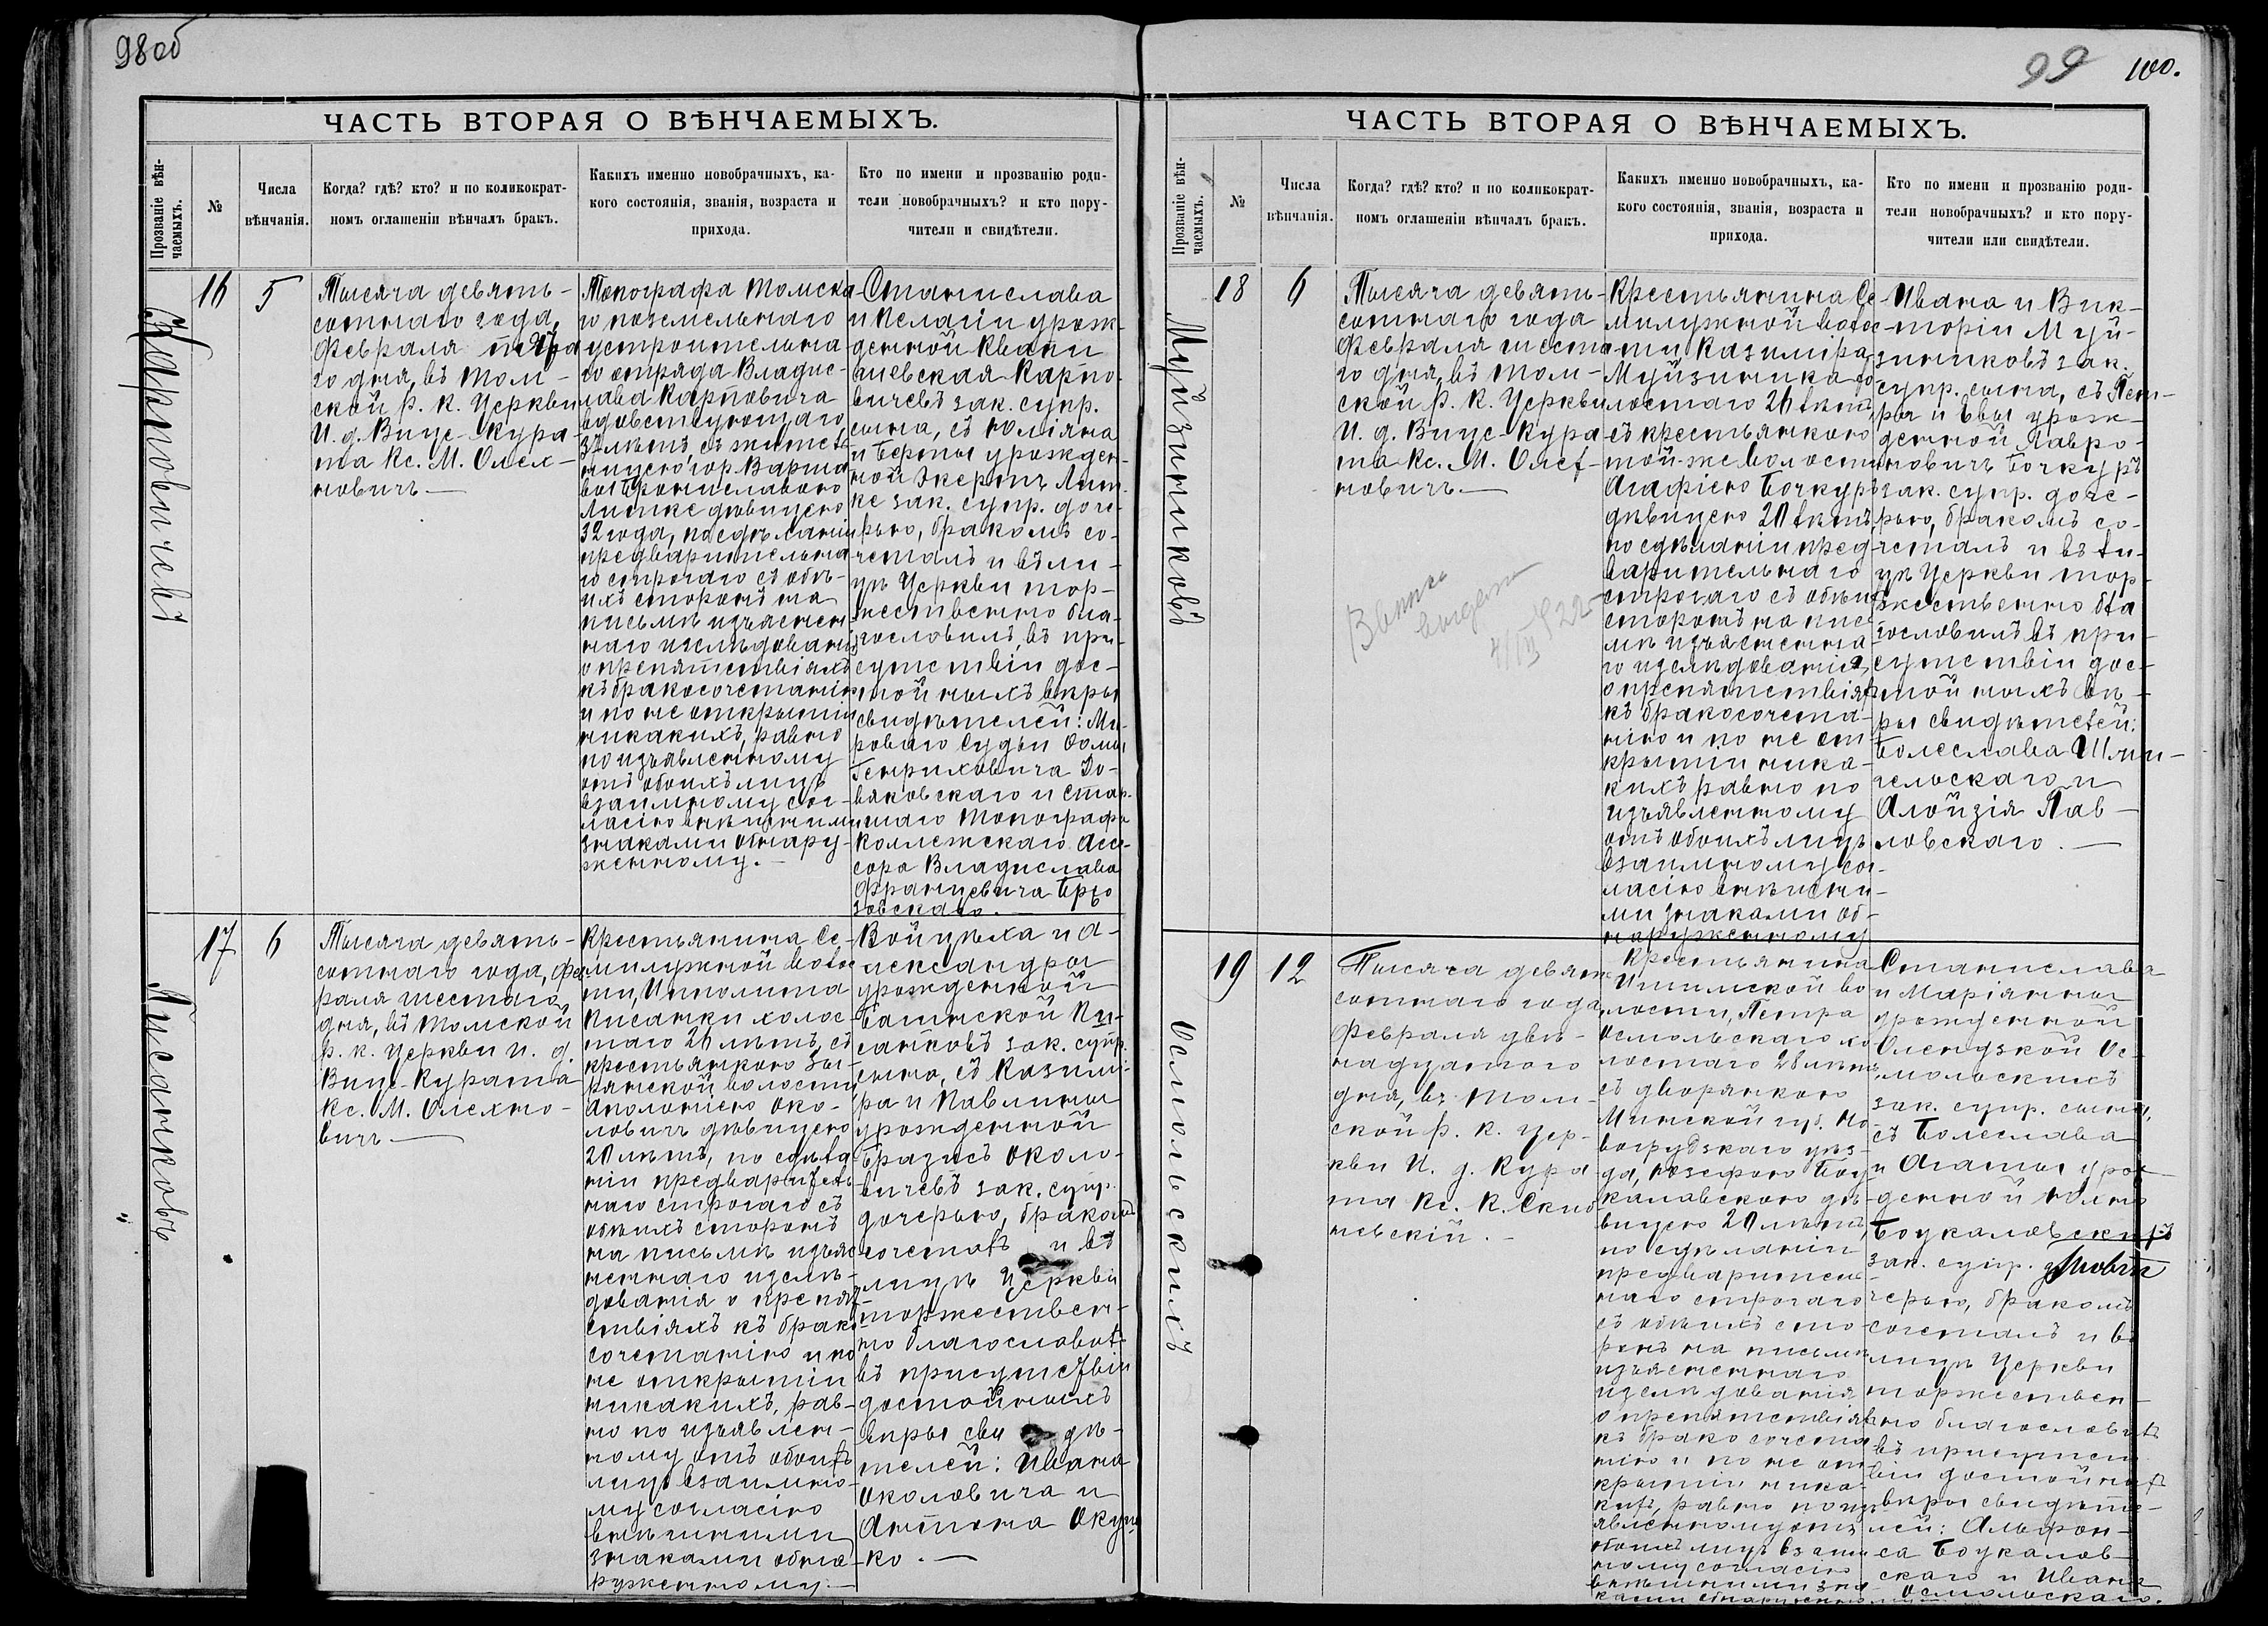 98об
ЧАСТЬ ВТОРАЯ О ВѢНЧАЕМЫХЪ.
Прозваніе вѣн-
чаемыхъ.
№
Числа
вѣнчанія.
Когда? гдѣ? кто? и по коликократ-
номъ оглашеніи вѣнчалъ бракъ.
Какихъ именно новобрачныхъ, ка-
кого состоянія, званія, возраста и
прихода.
Кто по имени и прозванію роди-
тели новобрачныхъ? и кто пору-
чители и свидѣтели.
Карповичевъ
16
5
Тысяча девять-
сотнаго года,
Февраля пята
го дня, въ Том-
ской Р. К. Церкви
И. д. Вице-Кура-
та Кс. М. Олех-
новичъ
Топографа Томска
го поземельнаго
устроительна
го отряда Владис-
лава Карповича
вдовствующаго
37 лѣтъ, съ житель
ницею гор. Варша
вы Брониславою
Липке дѣвицею
32 года, по сдѣланіи
предварительна
го строгаго съ обѣ-
ихъ сторонъ на
письмѣ изъяснен
наго изслѣдованія
о препятствіяхъ
къ бракосочетанію
и по не открытіи
никакихъ, равно
по изъявленному
отъ обоихъ лицъ
взаимному сог-
ласію внѣшними
знаками обнару-
женному.
Станислава
и Пелагіи урож-
денной Квапи
шевская Карпо-
вичевъ зак. супр.
сына, съ Юліяна
и Берты урожден-
ной Экертъ Лип-
ке зак. супр. доче-
рью, бракомъ со-
четалъ и въ ли-
цѣ Церкви тор-
жественно бла-
гословилъ, въ при-
сутствіи дос-
тойныхъ вѣры
свидѣтелей: Ми-
роваго Судьи Фомы
Генриховича До-
вяковскаго и стар-
шаго Топографа
Коллежскаго Асе-
сора Владислава
Францевича Брю
зовскаго.
Писанковъ
17
6
Тысяча девять-
сотнаго года, Фев
раля шестаго
дня, въ Томской
Р. К. Церкви И. д.
Вице-Курата
Кс. М. Олехно-
вичъ
Крестьянина Се-
милужной волос
ти, Ипполита
Писанки холос-
таго 26 лѣтъ, съ
крестьянкою Зы-
рянской волости
Аполоніею Око-
ловичъ дѣвицею
20 лѣтъ, по сдѣла
ніи предваритель
наго строгаго съ
обѣихъ сторонъ
на письмѣ изъяс
неннаго изслѣ-
дованія о препят
ствіяхъ къ брако
сочетанію и по
не открытіи
никакихъ, рав-
но по изъявлен-
ному отъ обоихъ
лицъ взаимно-
му согласію
внѣшними
знаками обна-
руженному.
Войцѣха и А-
лександры
урожденной
Багинской Пи-
санковъ зак. супр.
сына, съ Казими-
ра и Павлины
урожденной
Бразисъ Около-
вичевъ зак. супр.
дочерью, бракомъ
сочеталъ и въ
лицѣ Церкви
торжествен-
но благословилъ
въ присутствіи
достойныхъ
вѣры свидѣ-
телей: Ивана
Околовича и
Антона Окуш
ко.
99
100.
ЧАСТЬ ВТОРАЯ О ВѢНЧАЕМЫХЪ.
Прозваніе вѣн-
чаемыхъ.
№
Числа
вѣнчанія.
Когда? гдѣ? кто? и по коликократ-
номъ оглашеніи вѣнчалъ бракъ.
Какихъ именно новобрачныхъ, ка-
кого состоянія, званія, возраста и
прихода.
Кто по имени и прозванію роди-
тели новобрачныхъ? и кто пору-
чители или свидѣтели.
Муйзиниковъ
18
6
Тысяча девять-
сотнаго года
Февраля шеста-
го дня, въ Том-
ской Р. К. Церкви
И. д. Вице-Кура-
та Кс. М. Олех-
новичъ
Крестьянина Се-
милужной волос-
ти Казиміра
Муйзиника хо
лостаго 26 лѣтъ,
съ крестьянкою
той-же волости
Агафіею Бочкуръ
дѣвицею 20 лѣтъ,
по сдѣланіи пред
варительнаго
строгаго съ обѣихъ
сторонъ на пись
мѣ изъясненна
го изслѣдованія
о препятствіяхъ
къ бракосочета-
нію и по не от
крытіи ника-
кихъ равно по
изъявленному
отъ обоихъ лицъ
взаимному сог-
ласію внѣшни-
ми знаками об-
наруженному
Ивана и Вик-
торіи Муй-
зиниковъ зак.
супр. сына, съ Пет-
ра и Евы урож-
денной Лавро-
новичъ Бочкуръ
зак. супр. доче-
рью, бракомъ со-
четалъ и въ ли-
цѣ Церкви тор-
жественно бла
гословилъ въ при-
сутствіи дос-
тойныхъ вѣ-
ры свидѣтелей:
Болеслава Шпи-
гельскаго и
Алойзія Пав-
ловскаго.
выдана
Осмольскихъ
19
12
Тысяча девять
сотнаго года,
Февраля двѣ-
надцатого
дня, въ Том-
ской Р. К. Цер-
кви И. д. Кура
та Кс. К.
невскій.
Крестьянина
Ишимской во
лости, Петра
Осмольскаго хо
лостаго 28 лѣтъ,
съ дворянкою
Минской губ. Но
вогрудскаго уѣз-
да, Юзефою Боу
каловскою дѣ
вицею 20 лѣтъ,
по сдѣланіи
предваритель
наго строгаго
съ обѣихъ сто
ронъ на письмѣ
изъясненнаго
изслѣдованія
о препятствіяхъ
къ бракосочета
нію и по не от
крытіи ника-
кихъ, равно по изъ
явленному отъ
обоихъ лицъ взаим
ному согласію
внѣшними зна
ками обнаруженно
Станислава
и Маріянны
урожденной
Олендзкой Ос-
мольскихъ
зак. супр. сына,
съ Болеслава
и Агаты урож
денной Юхно
Боукаловскихъ
зак. супр. до-
черью, бракомъ
сочеталъ и въ
лицѣ Церкви
торжествен-
но благословилъ
въ присутст
віи достойныхъ
вѣры свидѣте-
лей: Альфон-
са Боукалов-
скаго и Ивана
Осмольскаго.